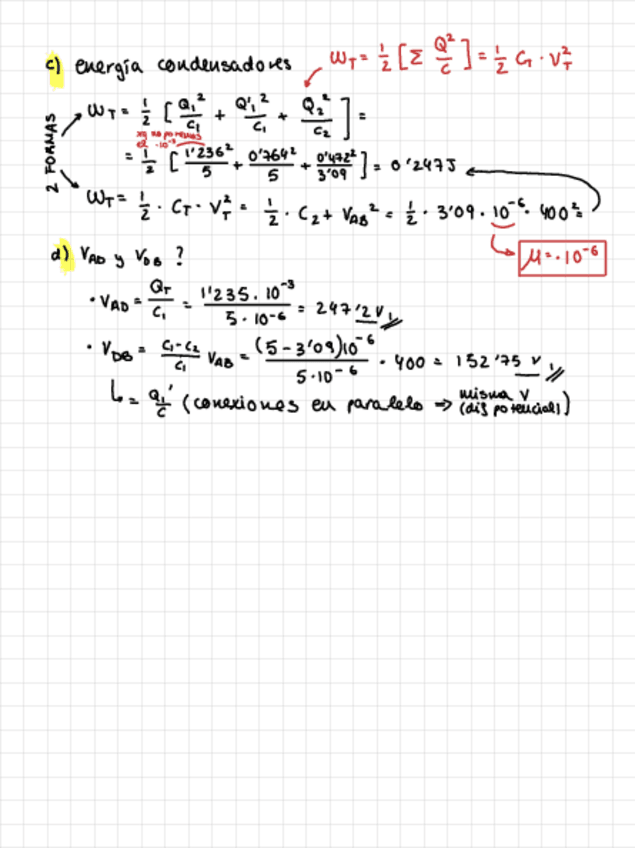 c) energía condensadores
W_T = 1/2 [Σ Q²/C] = 1/2 C_T · V_T²
2 FORMAS
W_T = 1/2 [Q₁²/C₁ + Q'₁²/C₁ + Q₂²/C₂] =
xq no ponemos el ·10⁻³
= 1/2 [1'236²/5 + 0'764²/5 + 0'472²/3'09] = 0'247J
W_T = 1/2 · C_T · V_T² = 1/2 · C₂ + V_AB² = 1/2 · 3'09 · 10⁻⁶ · 400² =
μ = ·10⁻⁶
d) V_AD y V_DB ?
· V_AD = Q_T/C₁ = 1'235 · 10⁻³ / 5 · 10⁻⁶ = 247'2 V,
· V_DB = C₁-C₂/C₁ V_AB = (5-3'09)10⁻⁶ / 5·10⁻⁶ · 400 = 152'75 V,
↳ = Q₁'/C (conexiones en paralelo ⇒ misma V (dif potencial))